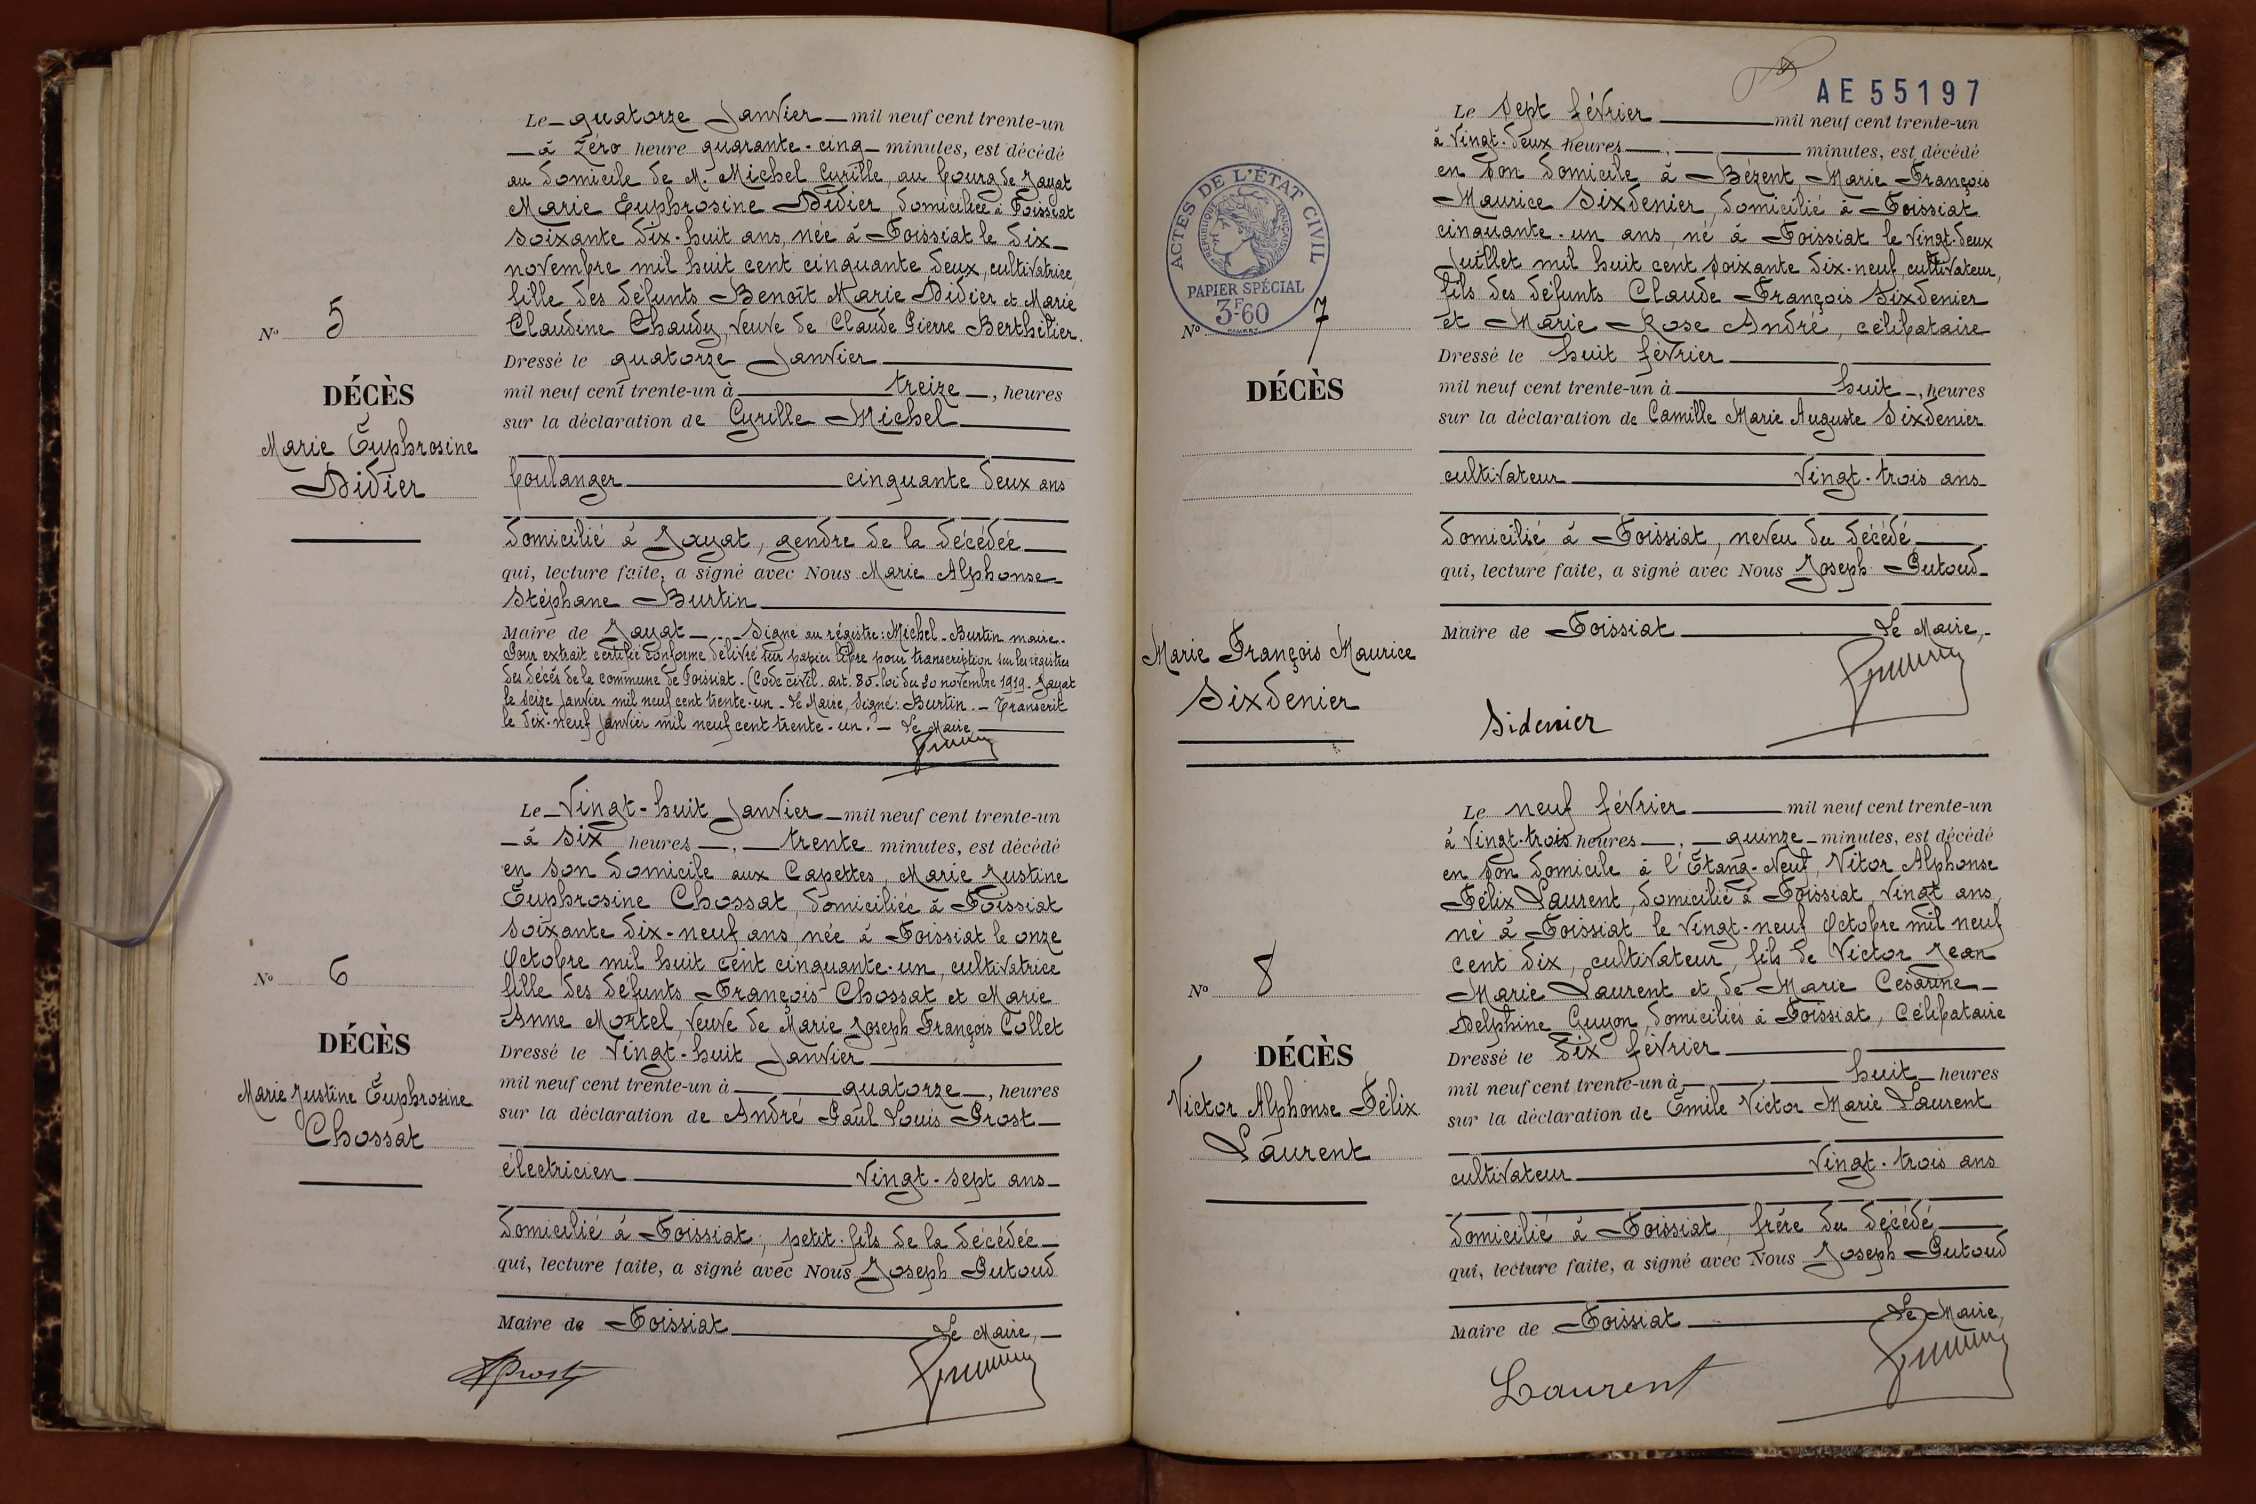 Le quatorze Janvier mil neuf cent trente-un
à zéro heure quarante-cinq minutes, est décédé
au domicile de M. Michel Cyrille, au bourg de Jayat
Marie Euphrosine Didier, domiciliée à Foissiat
soixante dix-huit ans, née à Foissiat le dix
novembre mil huit cent cinquante deux, cultivatrice,
fille des défunts Benoît Marie Didier et Marie
Claudine Chaudy, veuve de Claude Pierre Berthelier.
Dressé le quatorze Janvier
mil neuf cent trente-un à treize, heures
sur la déclaration de Cyrille Michel
boulanger cinquante deux ans
domicilié à Jayat, gendre de la décédée
qui, lecture faite, a signé avec Nous Marie Alphonse
Stéphane Burtin
Maire de Jayat - Signé au régistre: Michel - Burtin maire.
Pour extrait certifié conforme délivré sur papier libre pour transcription sur les régistres
des décès de la commune de Foissiat. (Code civil. art. 80. loi du 20 novembre 1919. Jayat
le seize Janvier mil neuf cent trente-un - Le Maire, Signé: Burtin. - Transcrit
le dix-neuf Janvier mil neuf cent trente-un. - Le Maire
N° 5
DÉCÈS
Marie Euphrosine
Didier
Le Vingt-huit Janvier mil neuf cent trente-un
à six heures, trente minutes, est décédé
en son domicile aux Capettes, Marie Justine
Euphrosine Chossat, domiciliée à Foissiat
soixante dix-neuf ans, née à Foissiat le onze
Octobre mil huit cent cinquante-un, cultivatrice
fille des défunts François Chossat et Marie
Anne Mortel, veuve de Marie Joseph François Collet
Dressé le Vingt-huit Janvier
mil neuf cent trente-un à quatorze, heures
sur la déclaration de André Paul Louis Prost
électricien Vingt-sept ans
domicilié à Foissiat, petit-fils de la décédée
qui, lecture faite, a signé avec Nous Joseph Putoud
Maire de Foissiat Le Maire,
Prost
N° 6
DÉCÈS
Marie Justine Euphrosine
Chossat
AE 55197
ACTES DE L'ÉTAT CIVIL
RÉPUBLIQUE FRANÇAISE
PAPIER SPÉCIAL
3F60
Le sept février mil neuf cent trente-un
à Vingt-deux heures, minutes, est décédé
en son domicile à Bézent Marie François
Maurice Sixdenier, domicilié à Foissiat
cinquante-un ans, né à Foissiat le Vingt-deux
Juillet mil huit cent soixante dix-neuf, cultivateur,
fils des défunts Claude François Sixdenier
et Marie Rose André, célibataire
Dressé le huit février
mil neuf cent trente-un à huit, heures
sur la déclaration de Camille Marie Auguste Sixdenier
cultivateur Vingt-trois ans
domicilié à Foissiat, neveu du décédé
qui, lecture faite, a signé avec Nous Joseph Putoud
Maire de Foissiat Le Maire,
Sidenier
N° 7
DÉCÈS
Marie François Maurice
Sixdenier
Le neuf février mil neuf cent trente-un
à Vingt-trois heures, quinze minutes, est décédé
en son domicile à l'Étang-Neuf, Vitor Alphonse
Félix Laurent, domicilié à Foissiat, Vingt ans,
né à Foissiat le Vingt-neuf Octobre mil neuf
cent dix, cultivateur, fils de Victor Jean
Marie Laurent et de Marie Césarine
Delphine Guyon, domiciliés à Foissiat, Célibataire
Dressé le dix février
mil neuf cent trente-un à huit heures
sur la déclaration de Émile Victor Marie Laurent
cultivateur Vingt-trois ans
domicilié à Foissiat, frère du décédé
qui, lecture faite, a signé avec Nous Joseph Putoud
Maire de Foissiat Le Maire,
Laurent
N° 8
DÉCÈS
Victor Alphonse Félix
Laurent